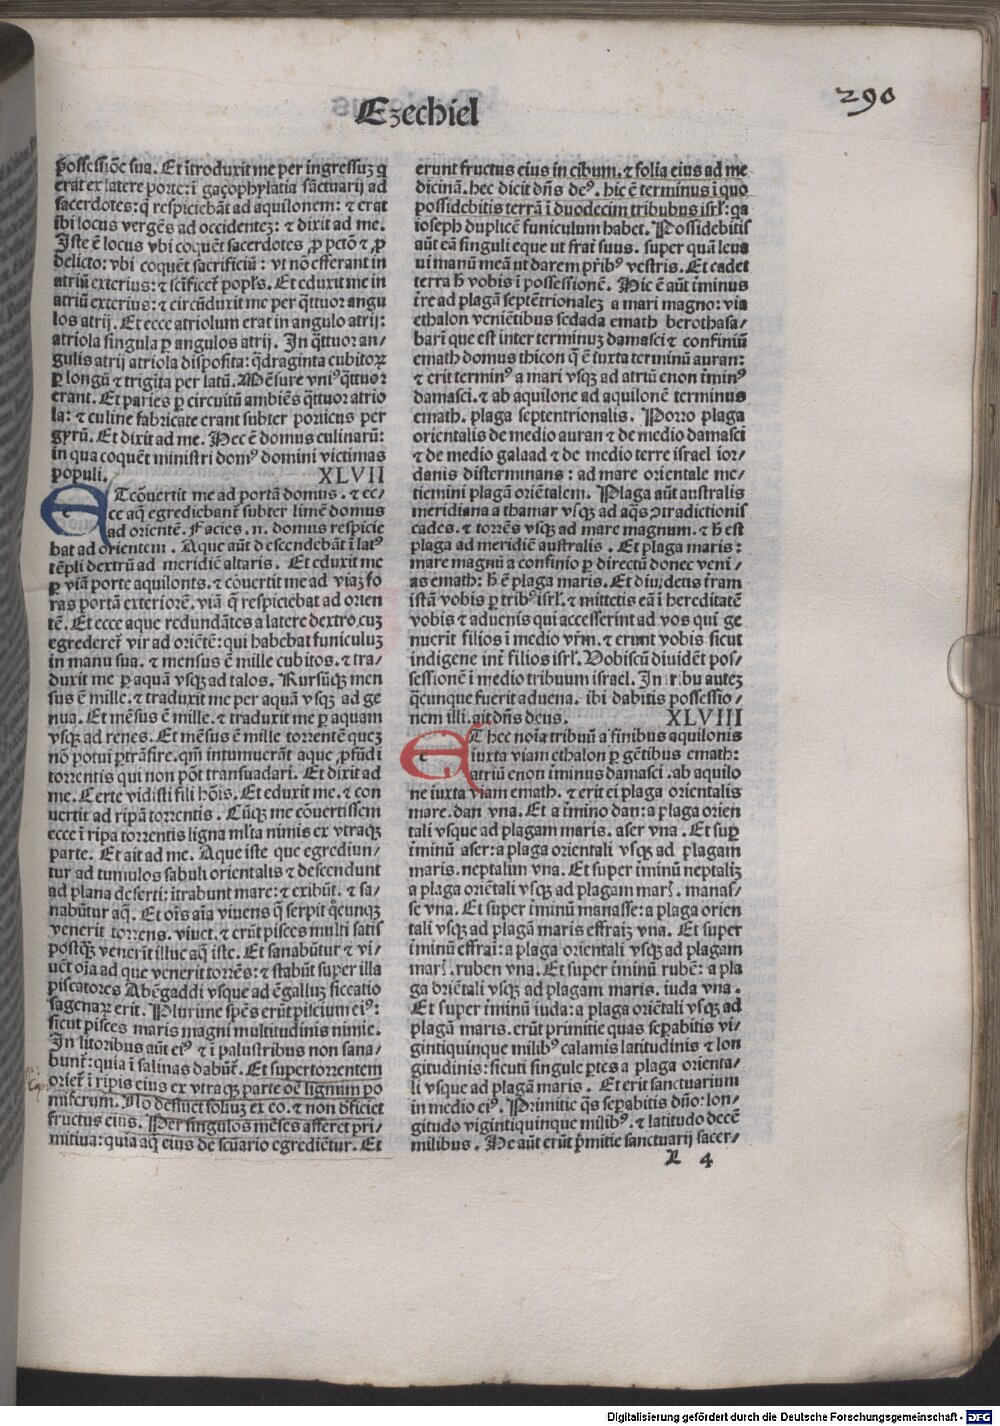 Ezechiel
290
possessiõe sua. Et ĩtroduxit me per ingressuʒ q
erat ex latere porte: ĩ gaçophylatia sãctuarij ad
sacerdotes: q̃ respiciebãt ad aquilonem: ⁊ erat
ibi locus vergẽs ad occidenteʒ: ⁊ dixit ad me.
Iste ẽ locus vbi coquẽt sacerdotes ꝓ pctõ ⁊ ꝓ
delicto: vbi coquẽt sacrificiũ: vt nõ efferant in
atriũ exterius: ⁊ sc̃ificeť popľs. Et eduxit me in
atriũ exterius: ⁊ circũduxit me per q̃ttuor angu
los atrij. Et ecce atriolum erat in angulo atrij:
atriola singula ꝑ angulos atrij. In q̃ttuor an/
gulis atrij atriola disposita: q̃draginta cubitoꝝ
ꝑ longũ ⁊ trigĩta per latũ. Mẽsure vniꝰ q̃ttuor
erant. Et paries ꝑ circuitũ ambiẽs q̃ttuor atrio
la: ⁊ culine fabricate erant subter porticus per
gyrũ. Et dixit ad me. Hec ẽ domus culinarũ:
in qua coquẽt ministri domꝰ domini victimas
populi. XLVII
ET cõuertit me ad portã domus. ⁊ ec/
ce aq̃ egrediebant̃ subter limẽ domus
ad orientẽ. Facies .n. domus respicie
bat ad orientem. Aque aũt descendebãt ĩ latꝰ
tẽpli dextrũ ad meridiẽ altaris. Et eduxit me
ꝑ viã porte aquilonis. ⁊ cõuertit me ad viaʒ fo
ras portã exteriorẽ. viã q̃ respiciebat ad orien
tẽ. Et ecce aque redundãtes a latere dextro. cuʒ
egrederet̃ vir ad oriẽtẽ: qui habebat funiculuʒ
in manu sua. ⁊ mensus ẽ mille cubitos. ⁊ tra/
duxit me ꝑ aquã vsqʒ ad talos. Rursũqʒ men
sus ẽ mille. ⁊ traduxit me per aquã vsqʒ ad ge
nua. Et mẽsus ẽ mille. ⁊ traduxit me ꝑ aquam
vsqʒ ad renes. Et mẽsus ẽ mille torrentẽ queʒ
nõ potui ꝑtrãsire. qm̃ intumuerãt aque ꝓfũdi
torrentis qui non põt transuadari. Et dixit ad
me. Certe vidisti fili hõis. Et eduxit me. ⁊ con
uertit ad ripã torrentis. Cũqʒ me cõuertissem
ecce ĩ ripa torrentis ligna ml̃ta nimis ex vtraqʒ
parte. Et ait ad me. Aque iste que egrediun/
tur ad tumulos sabuli orientalis ⁊ descendunt
ad plana deserti: ĩtrabunt mare: ⁊ exibũt. ⁊ sa/
nabũtur aq̃. Et oĩs aĩa viuens q̃ serpit q̃cunqʒ
venerit torrens. viuet. ⁊ erũt pisces multi satis
postqʒ̃ venerĩt illuc aq̃ iste. Et sanabũtur ⁊ vi/
uẽt oĩa ad que venerit torrẽs: ⁊ stabũt super illa
piscatores Ab ẽgaddi vsque ad ẽgalluʒ siccatio
sagenaꝝ erit. Plurime spẽs erũt pisciũm eiꝰ:
sicut pisces maris magni multitudinis nimie.
In litoribus aũt eiꝰ ⁊ ĩ palustribus non sana/
bunt̃: quia ĩ salinas dabũt̃. Et super torrentem
orieť ĩ ripis eius ex vtraqʒ parte oẽ lignum po
miferum. Nõ defluet foliuʒ ex eo. ⁊ non d̃ficiet
fructus eius. Per singulos mẽses afferet pri/
mitiua: quia aq̃ eius de scũario egrediẽtur. Et
erunt fructus eius in cibum. ⁊ folia eius ad me
dicinã. hec dicit dñs deꝰ. hic ẽ terminus ĩ quo
possidebitis terrã ĩ duodecim tribubus isrľ: qa
ioseph duplicẽ funiculum habet. Possidebitis
aũt eã singuli eque ut frať suus. super quã leua
ui manũ meã ut darem pr̃ibꝰ vestris. Et cadet
terra h̃ vobis ĩ possessionẽ. Hic ẽ aũt t̃minus
t̃re ad plagã septẽtrionaleʒ a mari magno: via
ethalon veniẽtibus sedada emath berothasa/
barĩ que est inter terminuʒ damasci ⁊ confiniũ
emath domus thicon q̃ ẽ iuxta terminũ auran:
⁊ erit terminꝰ a mari vsqʒ ad atriũ enon t̃minꝰ
damasci. ⁊ ab aquilone ad aquilonẽ terminus
emath. plaga septentrionalis. Porro plaga
orientalis de medio auran ⁊ de medio damasci
⁊ de medio galaad ⁊ de medio terre israel ior/
danis disterminans: ad mare orientale me/
tiemini plagã oriẽtalem. Plaga aũt australis
meridiana a thamar vsqʒ ad aq̃s ɔtradictionis
cades. ⁊ torrẽs vsqʒ ad mare magnum. ⁊ h̃ est
plaga ad meridiẽ australis. Et plaga maris:
mare magnũ a confinio ꝑ directũ donec veni/
as emath: h̃ ẽ plaga maris. Et diuidetis t̃ram
istã vobis ꝑ tribꝰ isrľ. ⁊ mittetis eã ĩ hereditatẽ
vobis ⁊ aduenis qui accesserint ad vos qui ge
nuerit filios ĩ medio vr̃m. ⁊ erunt vobis sicut
indigene int̃ filios isrľ. Vobiscũ diuidẽt pos/
sessionẽ ĩ medio tribuum israel. In tribu auteʒ
q̃cunque fuerit aduena. ibi dabitis possessio/
nem illi. ait dñs deus. XLVIII
ET hec noĩa tribuũ a finibus aquilonis
iuxta viam ethalon ꝑ gẽtibus emath:
atriũ enon t̃minus damasci. ab aquilo
ne iuxta viam emath. ⁊ erit ei plaga orientalis
mare. dan vna. Et a t̃mino dan: a plaga orien
tali vsque ad plagam maris. aser vna. Et suꝑ
t̃minũ aser: a plaga orientali vsqʒ ad plagam
maris. neptalim vna. Et super t̃minũ neptaliʒ
a plaga oriẽtali vsqʒ ad plagam marꝭ. manas/
se vna. Et super t̃minũ manasse: a plaga orien
tali vsqʒ ad plagã maris effraiʒ vna. Et super
t̃minũ effraĩ: a plaga orientali vsqʒ ad plagam
marꝭ. ruben vna. Et super t̃minũ rubẽ: a pla
ga oriẽtali vsqʒ ad plagam maris. iuda vna.
Et super t̃minũ iuda: a plaga oriẽtali vsqʒ ad
plagã maris. erũt primitie quas seꝑabitis vi/
gintiquinque milibꝰ calamis latitudinis ⁊ lon
gitudinis: sicuti singule ꝑtes a plaga orienta/
li vsque ad plagã maris. Et erit sanctuarium
in medio eiꝰ. Primitie q̃s seꝑabitis dño: lon/
gitudo vigintiquinque milibꝰ. ⁊ latitudo decẽ
milibus. He aũt erũt p̃mitie sanctuarij sacer/
L 4
Digitalisierung gefördert durch die Deutsche Forschungsgemeinschaft - DFG